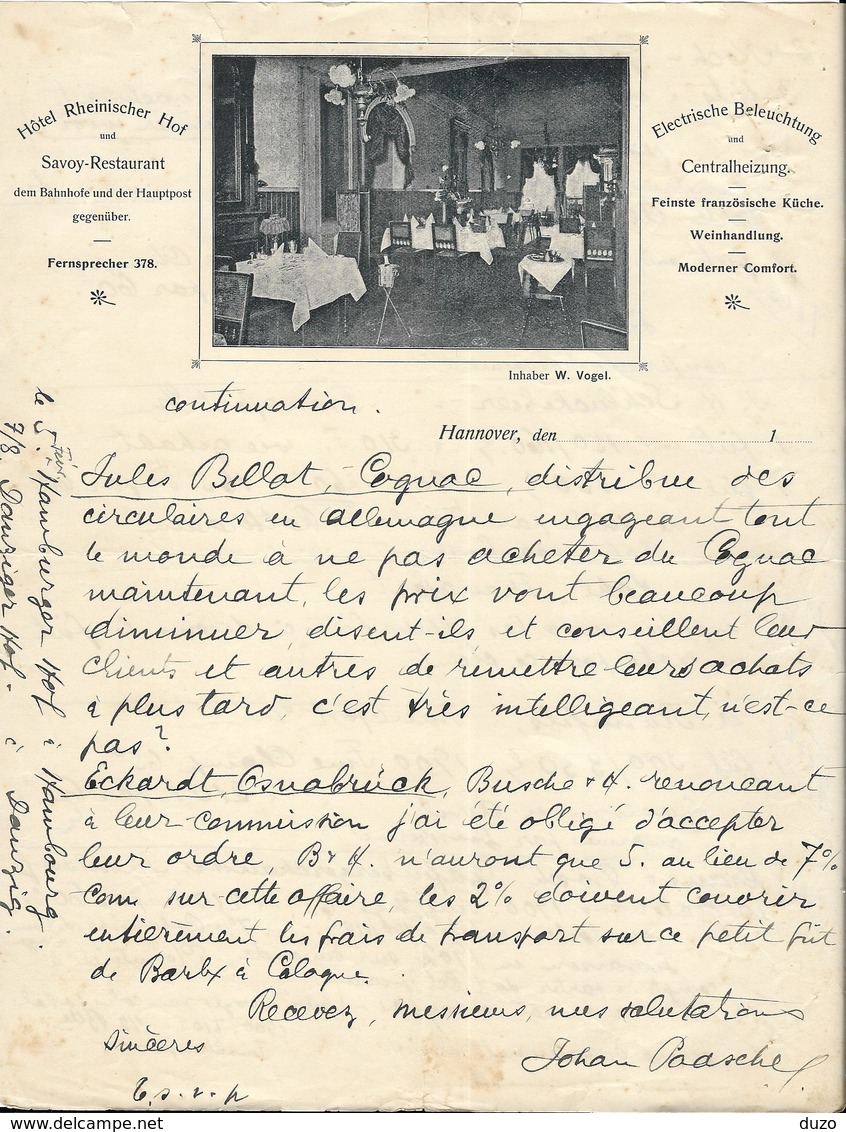 Hôtel Rheinischer Hof
und
Savoy-Restaurant
dem Bahnhofe und der Hauptpost
gegenüber.
Fernsprecher 378.
Electrische Beleuchtung
und
Centralheizung.
Feinste französische Küche.
Weinhandlung.
Moderner Comfort.
Inhaber W. Vogel.
continuation.
Hannover, den 1
Jules Bellot, Cognac, distribue des
circulaires en allemagne engageant tout
le monde à ne pas acheter du Cognac
maintenant, les prix vont beaucoup
diminuer, disent-ils et conseillent leur
clients et autres de remettre leurs achats
à plus tard, c'est très intelligeant, n'est-ce
pas?
Eckardt, Osnabrück, Busche & H. renonceant
à leur commission j'ai été obligé d'accepter
leur ordre, B & H. n'auront que 5. au lieu de 7%
com sur cette affaire, les 2% doivent couvrir
entièrement les frais de transport sur ce petit fût
de Bardx à Cologne.
Recevez, messieurs, mes salutations
sincères
Johan Paasche
T.s.v.p
le 5. Hamburger Hof à Hambourg.
7/8. Danziger Hof. à Danzig.
duzo